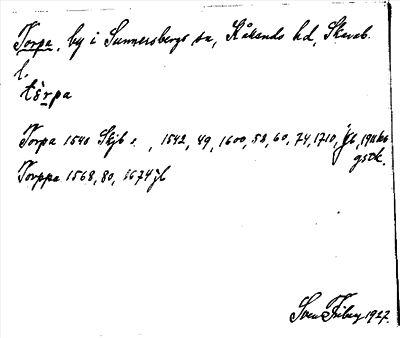 Torpa, by i Sunnersbergs sn, Kållands hd, Skarab.
l.
tɜrpa
Torpa 1540 Skjb :, 1542, 49, 1600, 58, 60, 74, 1710, jb, 1911
gsok.
Torppa 1568, 80, 1674 jb
Sven Friberg 1927.